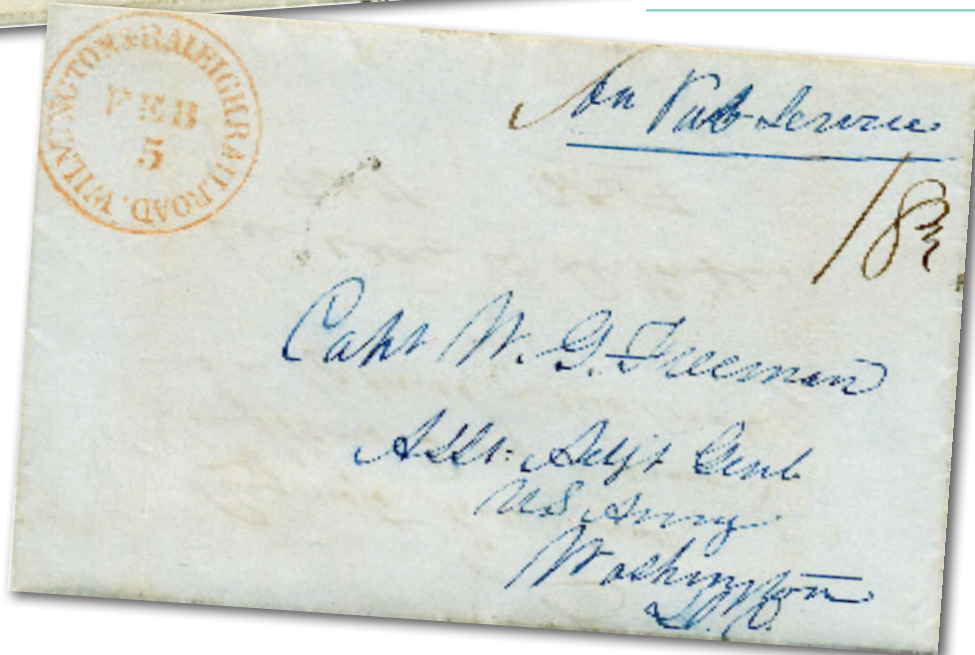 WILMINGTON & RALEIGH RAILROAD.
FEB
5
On Pub Service
18¾
Capt W. G. Freeman
Asst. Adjt Genl
US Army
Washington
D.C.